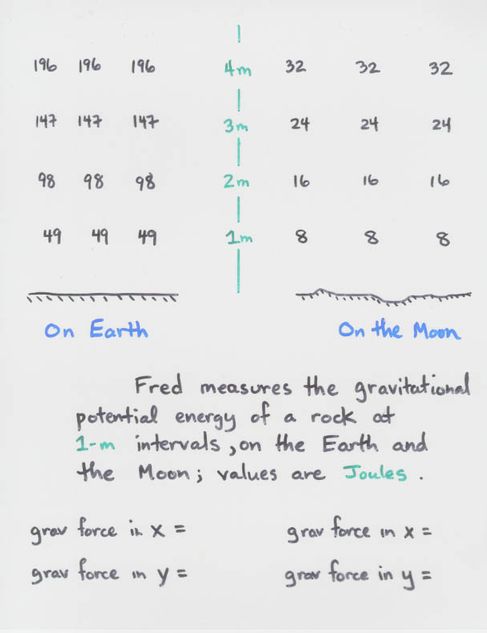 196 196 196 4m 32 32 32
147 147 147 3m 24 24 24
98 98 98 2m 16 16 16
49 49 49 1m 8 8 8
On Earth On the Moon
Fred measures the gravitational
potential energy of a rock at
1-m intervals, on the Earth and
the Moon; values are Joules.
grav force in x = grav force in x =
grav force in y = grav force in y =